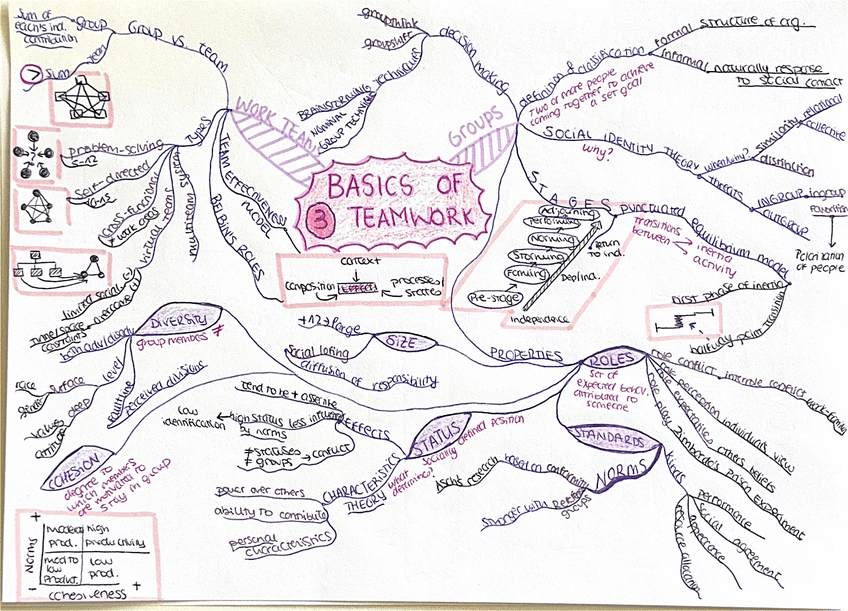 BASICS OF
3 TEAMWORK
WORK TEAM
GROUP VS. TEAM
GROUP
Sum of
each's ind.
contribution
TEAM
> Sum
TYPES
problem-solving
5-12
Self-directed
cross-functional
≠ work areas
virtual teams
multiteam system
TEAM EFFECTIVENESS
MODEL
BELBIN'S ROLES
context
composition
EFFECT.
processes/
states
GROUPS
decision making
groupthink
groupshift
TECHNIQUES
BRAINSTORMING
NOMINAL
GROUP TECHNIQUE
definition & classification
Two or more people
coming together to achieve
a set goal
formal
structure of org.
informal
naturally response
to social contact
SOCIAL IDENTITY THEORY
why?
when/why?
similarity
relational
collective
distinction
THREATS
INGROUP
ingroup
favoritism
OUTGROUP
Polarization
of people
STAGES
Adjourning
Performing
Norming
Storming
Forming
Pre-stage
Return
to ind.
Independence
punctuated equilibrium model
transitions
between
inertia
activity
first phase of inertia
halfway point transition
PROPERTIES
ROLES
set of
expected behav.
attributed to
someone
role conflict
interrole conflict
work-family
role perception
individual's view
role expectations
others beliefs
role play
Zimbardo's Prison Experiment
STANDARDS
NORMS
Kinds
performance
appearance
social agreement
resource allocation
based on conformity
Asch's research
stronger with
groups
STATUS
socially defined position
EFFECTS
high status less influenced
by norms
low
identification
≠ statuses
≠ groups
conflict
CHARACTERISTICS
THEORY
what
determines?
power over others
ability to contribute
personal
characteristics
SIZE
+12 = large
Social loafing
diffusion of responsibility
DIVERSITY
group members ≠
level
surface
race
gender
deep
values
faultline
perceived divisions
COHESION
degree to
which members
are motivated to
stay in group
+
Norms
-
moderate
prod.
high
productivity
mod to
low
product.
low
prod.
cohesiveness
+